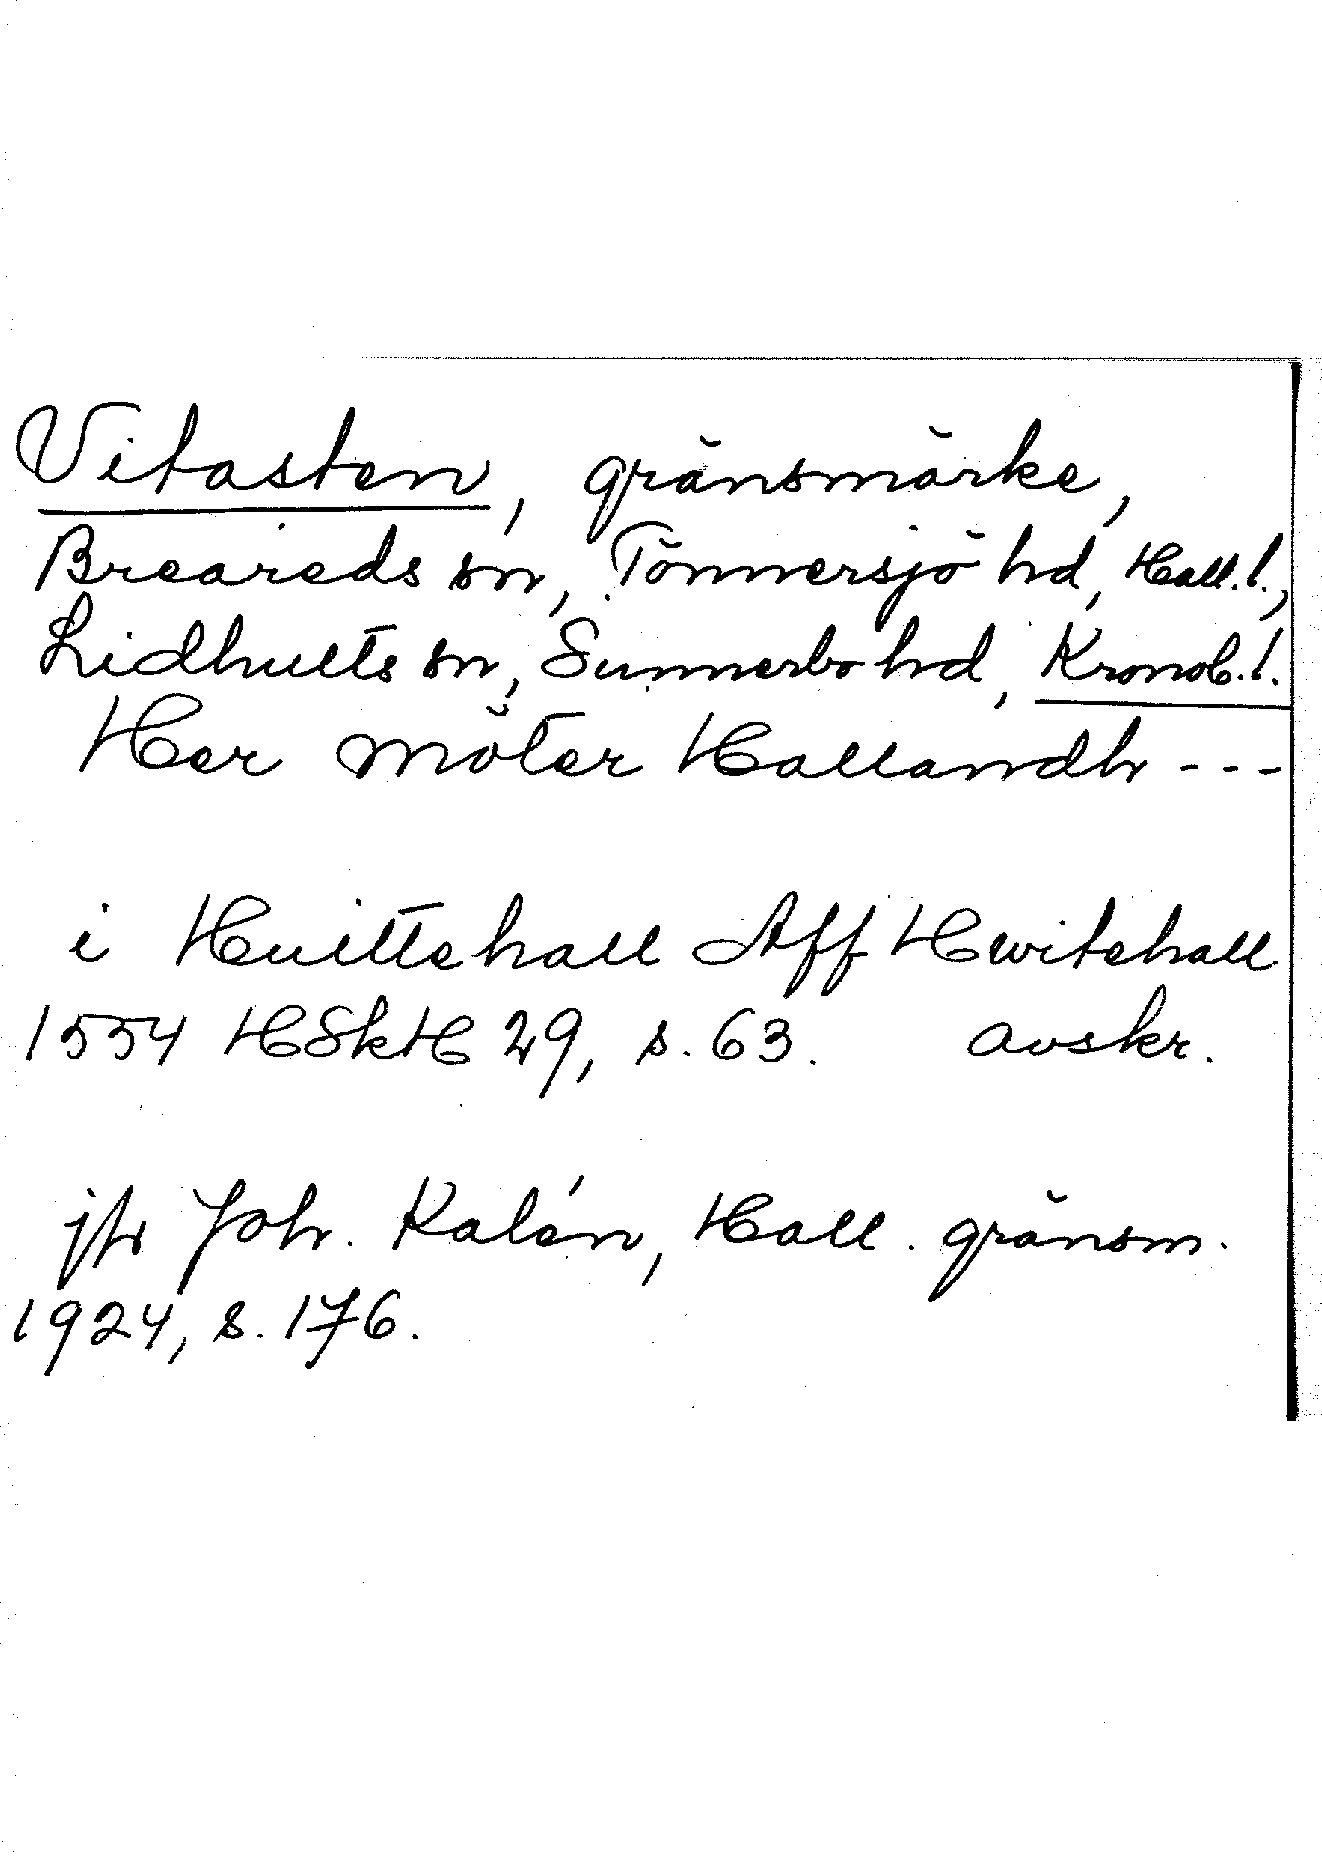 Vitasten, gränsmärke,
Breareds sn, Tönnersjö hd, Hall. l.,
Lidhults sn, Sunnerbo hd, Kronob. l.
Her möter Hallandh ---
i Huittehall Aff Hwitehall
1554 HSkH 29, s. 63. avskr.
jfr Joh. Kalén, Hall. gränsm.
1924, s. 176.